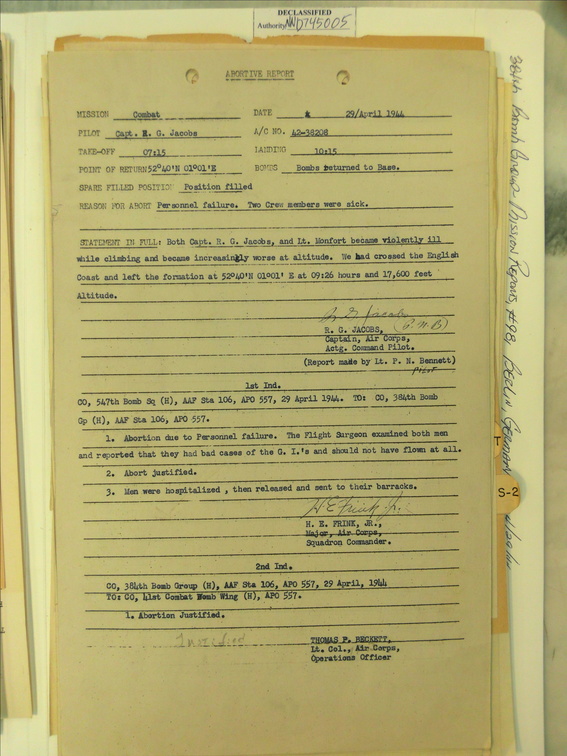 DECLASSIFIED
Authority NND745005
ABORTIVE REPORT
MISSION Combat DATE 29/April 1944
PILOT Capt. R. G. Jacobs A/C NO. 42-38208
TAKE-OFF 07:15 LANDING 10:15
POINT OF RETURN 52°40'N 01°01'E BOMBS Bombs Returned to Base.
SPARE FILLED POSITION Position filled
REASON FOR ABORT Personnel failure. Two Crew members were sick.
STATEMENT IN FULL: Both Capt. R. G. Jacobs, and Lt. Monfort became violently ill
while climbing and became increasingly worse at altitude. We had crossed the English
Coast and left the formation at 52°40'N 01°01' E at 09:26 hours and 17,600 feet
Altitude.
R. G. Jacobs
(P.N.B)
R. G. JACOBS,
Captain, Air Corps,
Actg. Command Pilot.
(Report made by Lt. P. N. Bennett)
PILOT
1st Ind.
CO, 547th Bomb Sq (H), AAF Sta 106, APO 557, 29 April 1944. TO: CO, 384th Bomb
Gp (H), AAF Sta 106, APO 557.
1. Abortion due to Personnel failure. The Flight Surgeon examined both men
and reported that they had bad cases of the G. I.'s and should not have flown at all.
2. Abort justified.
3. Men were hospitalized , then released and sent to their barracks.
H E Frink Jr.
H. E. FRINK, JR.,
Major, Air Corps,
Squadron Commander.
2nd Ind.
CO, 384th Bomb Group (H), AAF Sta 106, APO 557, 29 April, 1944
TO: CO, 41st Combat Bomb Wing (H), APO 557.
1. Abortion Justified.
THOMAS P. BECKETT,
Lt. Col., Air Corps,
Operations Officer
384th Bomb Group Mission Reports, #98, BERLIN, GERMANY
S-2